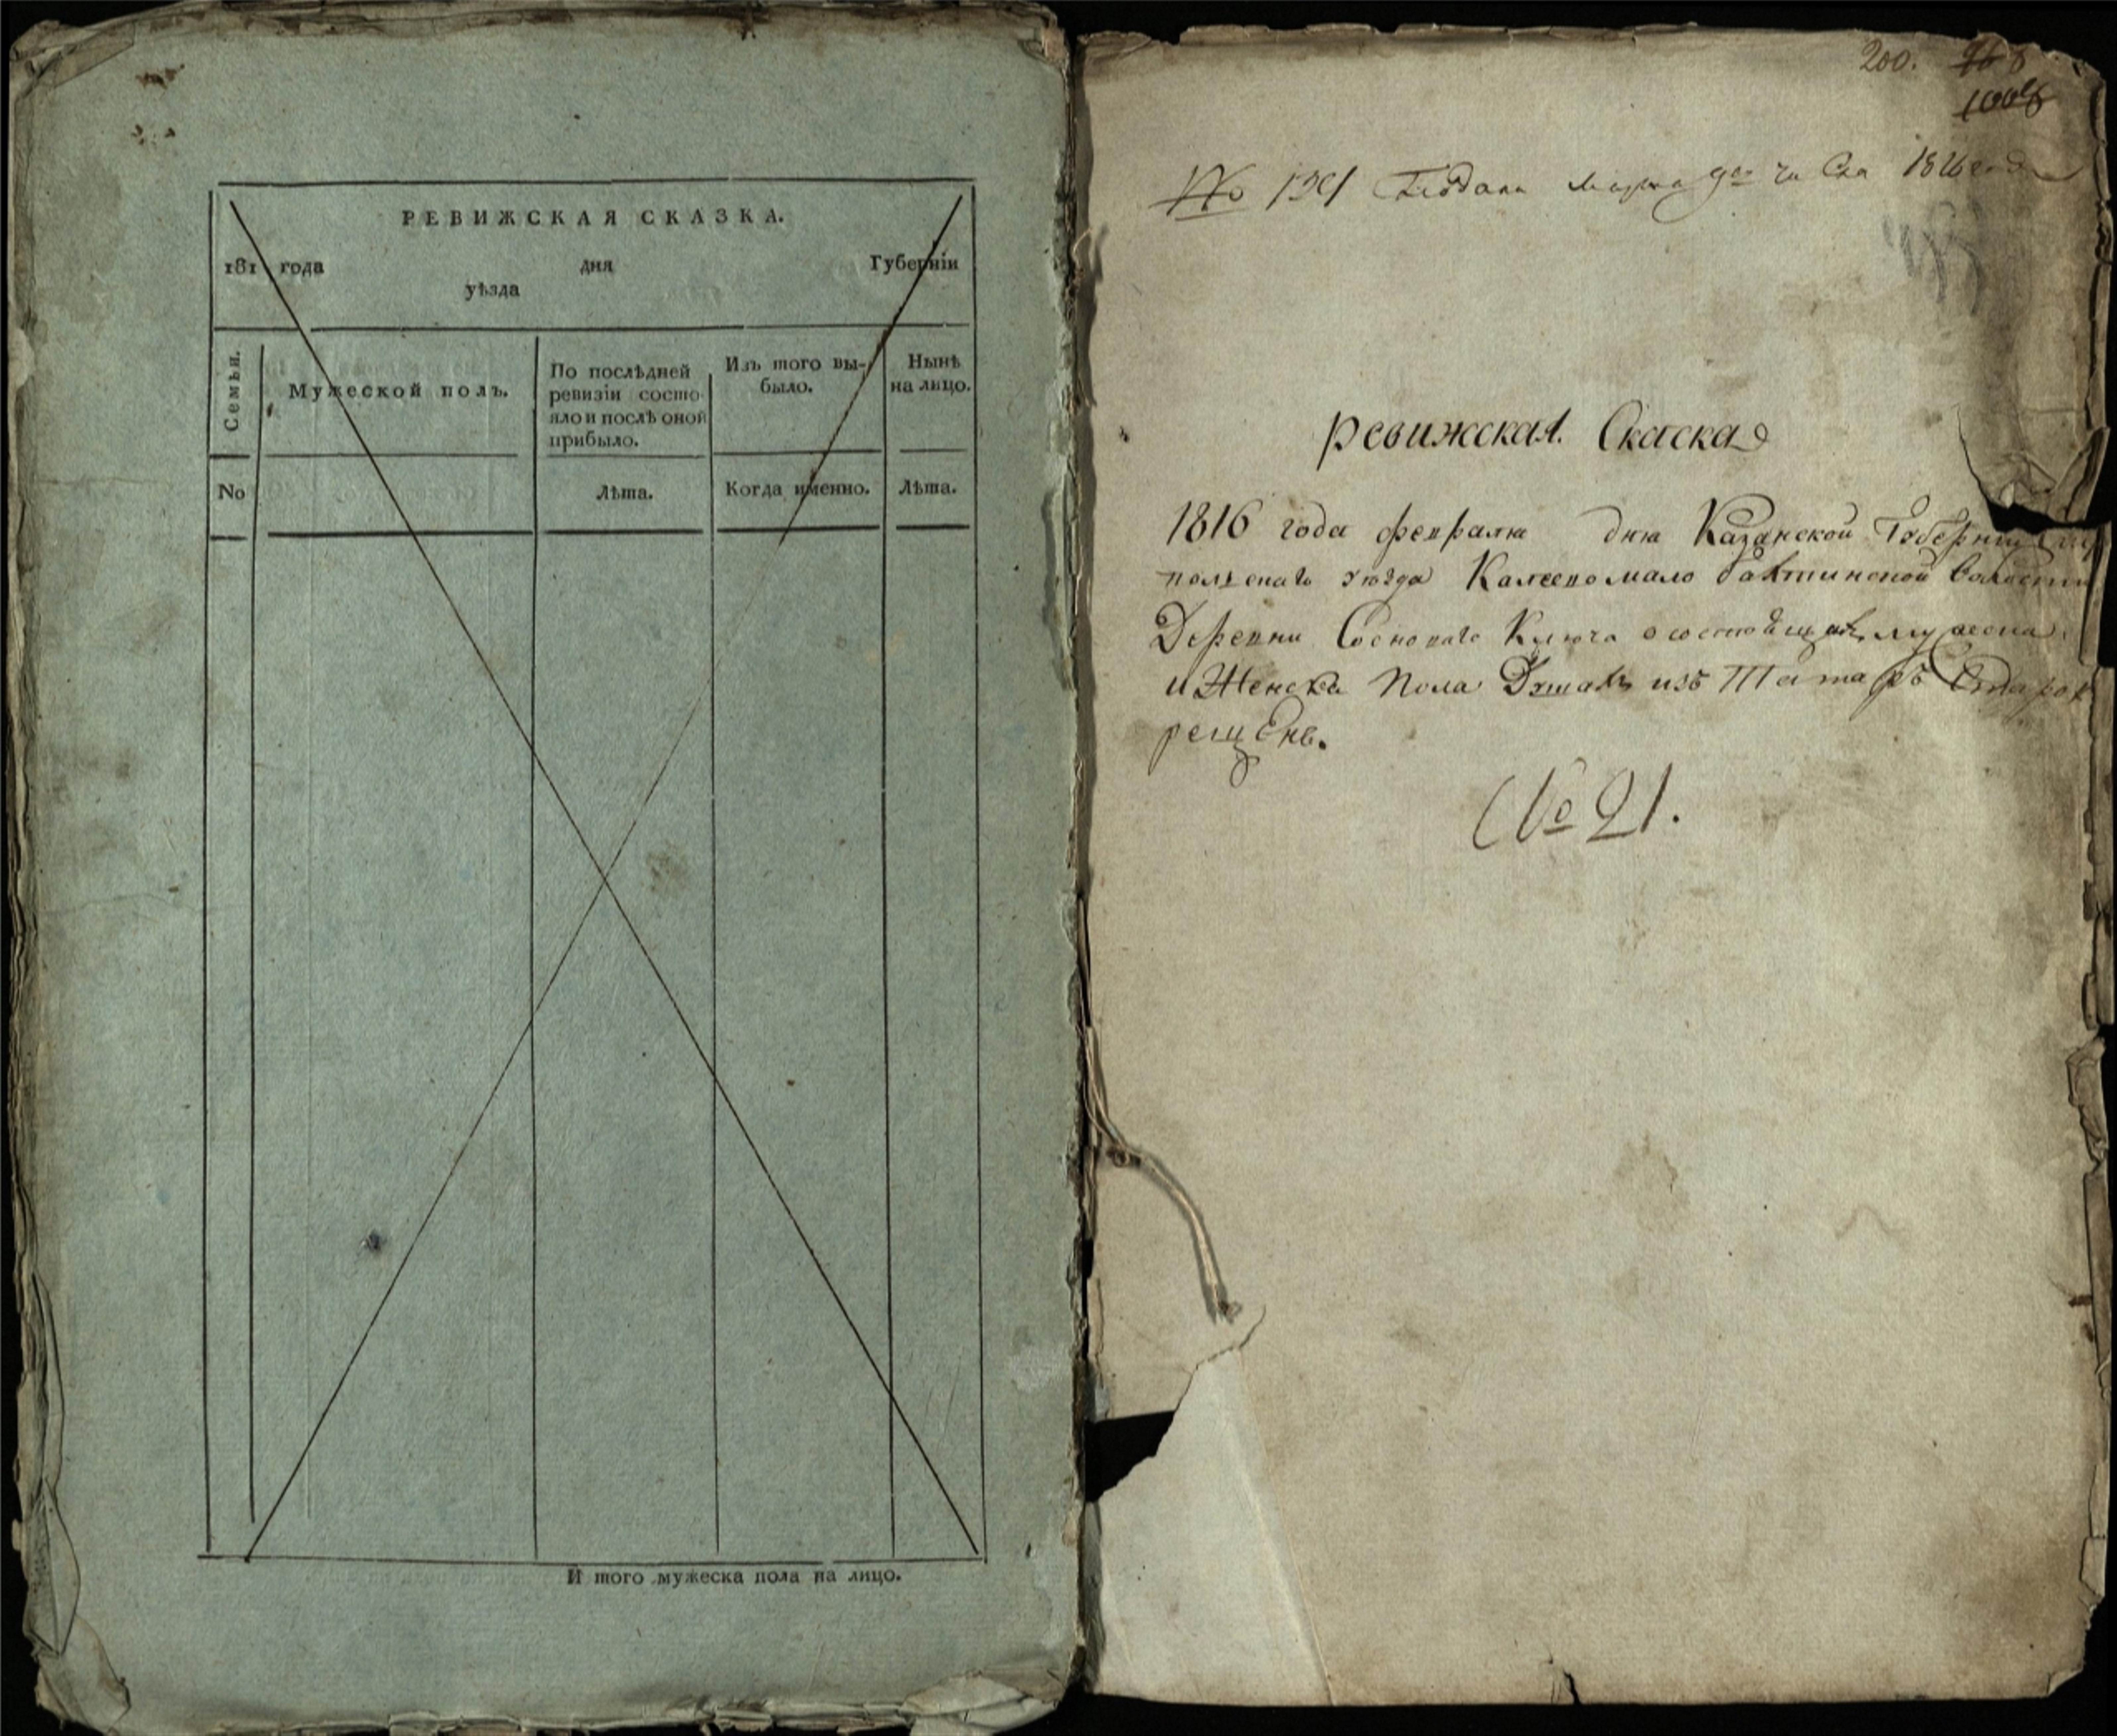 РЕВИЖСКАЯ СКАЗКА.
181 года дня Губерніи
уѣзда
Семьи.
Мужеской полъ.
По послѣдней
ревизіи состо-
яло и послѣ оной
прибыло.
Изъ того вы-
было.
Нынѣ
на лицо.
No
Лѣта.
Когда именно.
Лѣта.
И того мужеска пола на лицо.
200.
1008
No Подана марта 1816 года
Ревижская Скаска
1816 года февраля дня Казанской Губернии
уезда волости
Деревни Сосноваго Ключа о состоящих мужеска
и Женска Пола Душахъ изъ Татаръ Старок
рещень.
No 21.